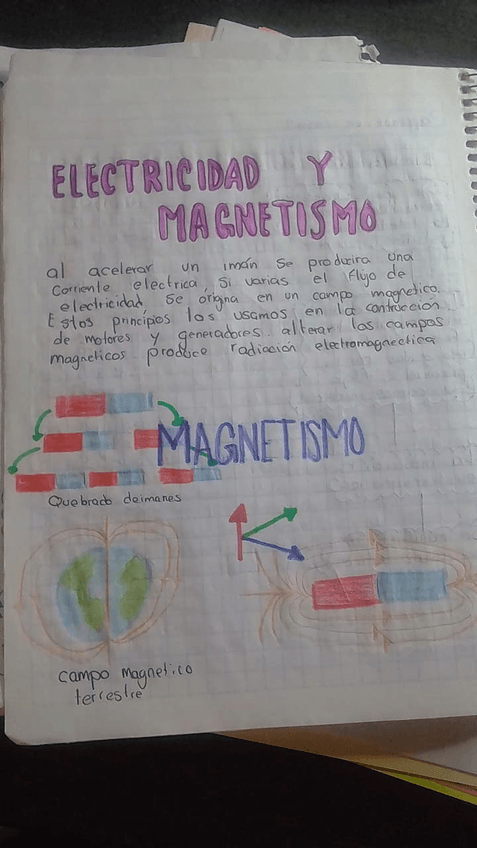 ELECTRICIDAD Y
MAGNETISMO
al acelerar un imán se producira una
Corriente electrica, Si varias el flujo de
electricidad, Se origina en un campo magnetico.
Estos principios los usamos en la contrucción
de motores y generadores. alterar los campos
magneticos produce radiación electromagnectica
MAGNETISMO
Quebrado deimanes
campo magnetico
terrestre